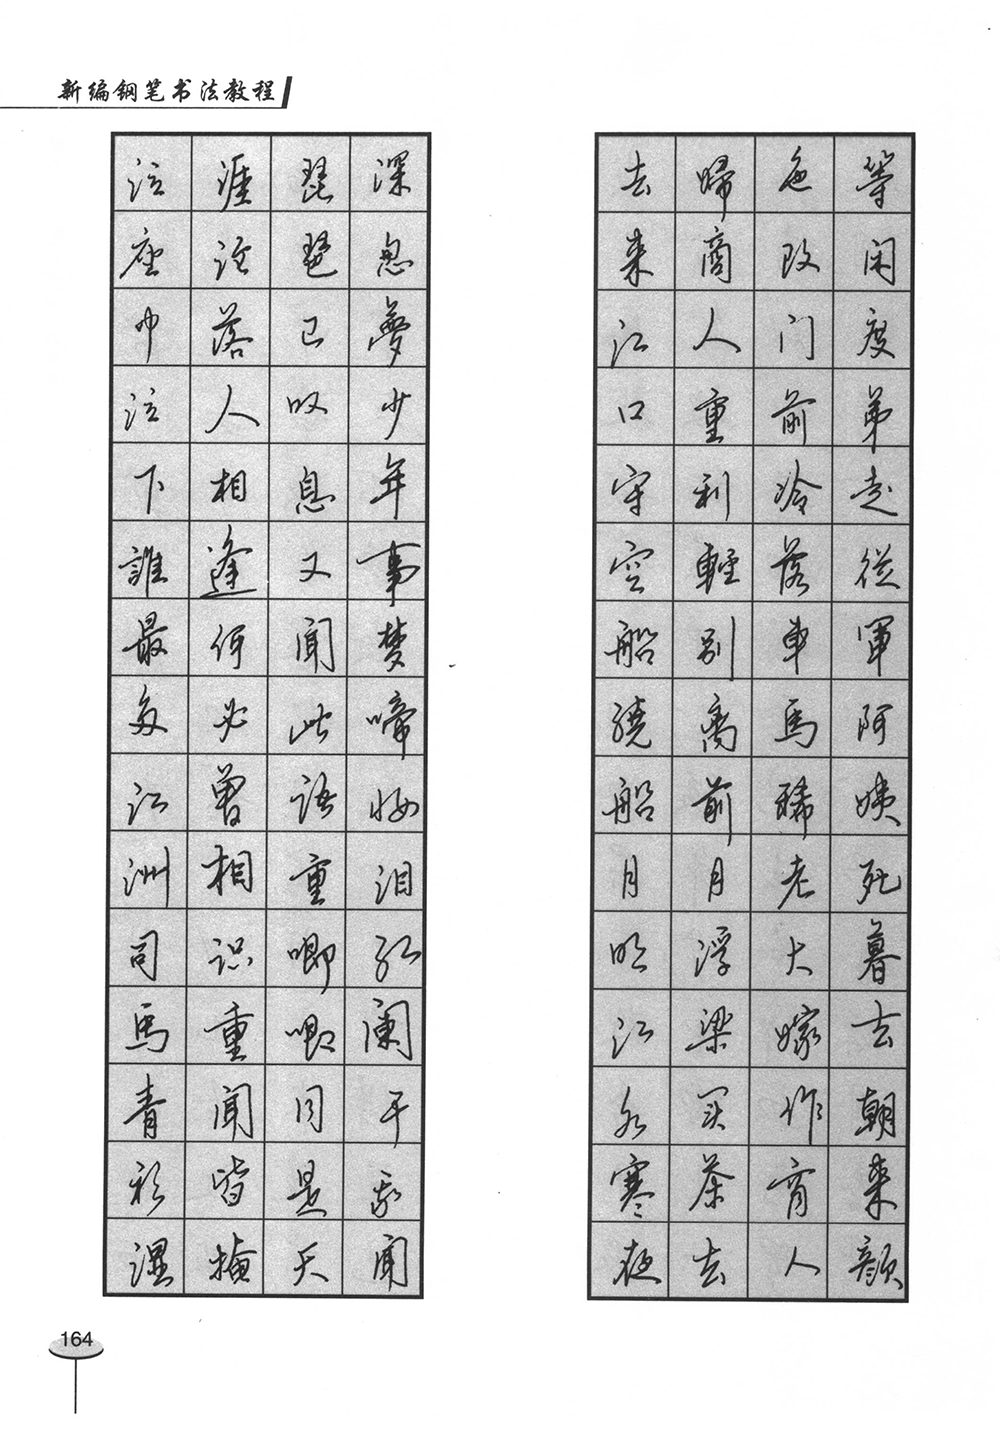 新编钢笔书法教程
等闲度弟走從軍阿姨死暮去朝来颜
色改门前冷落車馬稀老大嫁作商人
婦商人重利輕别离前月浮梁买茶去
去来江口守空船绕船月明江水寒夜
深忽夢少年事梦啼妝泪红阑干我闻
琵琶已叹息又闻此語重唧唧同是天
涯淪落人相逢何必曾相识重闻皆掩
泣座中泣下誰最多江洲司馬青衫湿
164